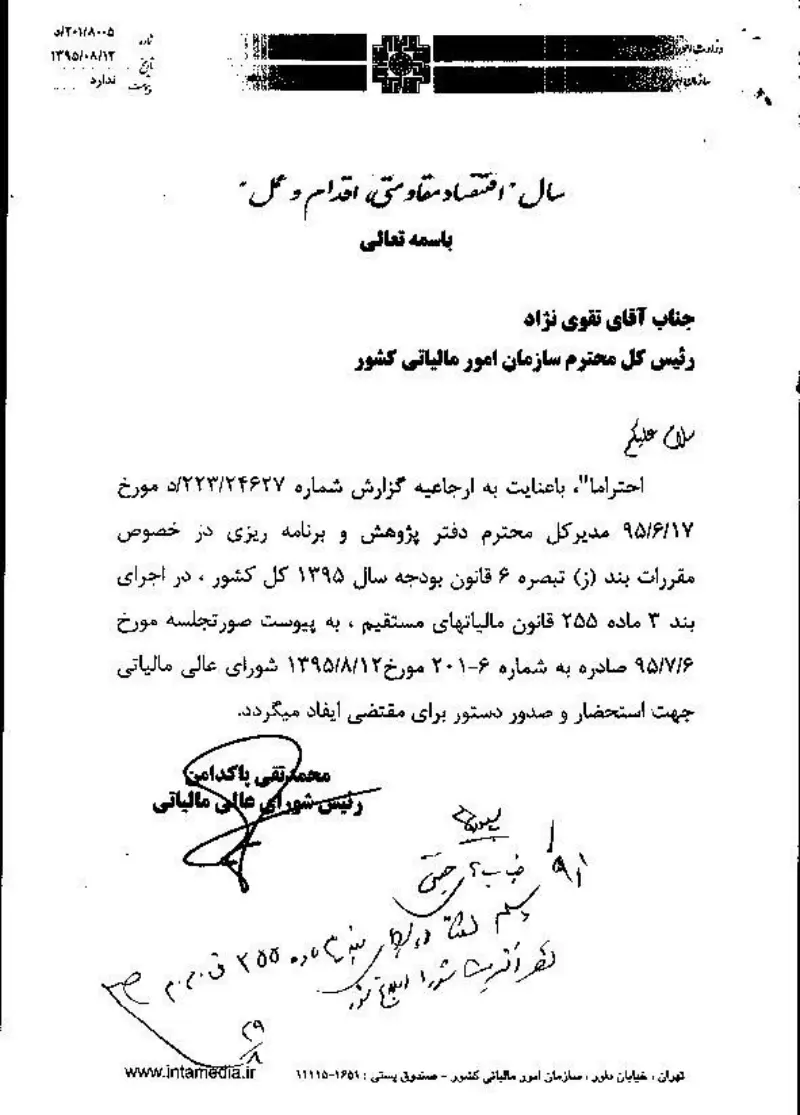 شماره ۲۰۱/۸۰۰۵/د
تاریخ ۱۳۹۵/۰۸/۱۲
پیوست ندارد
وزارت امور
سازمان امور
سال "اقتصاد مقاومتی، اقدام و عمل"
باسمه تعالی
جناب آقای تقوی نژاد
رئیس کل محترم سازمان امور مالیاتی کشور
سلام علیکم
احتراما"، باعنایت به ارجاعیه گزارش شماره ۲۲۳/۲۴۶۲۷/د مورخ
۹۵/۶/۱۷ مدیرکل محترم دفتر پژوهش و برنامه ریزی در خصوص
مقررات بند (ز) تبصره ۶ قانون بودجه سال ۱۳۹۵ کل کشور ، در اجرای
بند ۳ ماده ۲۵۵ قانون مالیاتهای مستقیم ، به پیوست صورتجلسه مورخ
۹۵/۷/۶ صادره به شماره ۶-۲۰۱ مورخ۱۳۹۵/۸/۱۲ شورای عالی مالیاتی
جهت استحضار و صدور دستور برای مقتضی ایفاد میگردد.
محمدتقی پاکدامن
رئیس شورای عالی مالیاتی
بند ۳ ماده ۲۵۵ ق.م.م
نظر اکثریت شورا ابلاغ شود
۲۹/۸
تهران ، خیابان داور ، سازمان امور مالیاتی کشور - صندوق پستی : ۱۶۵۱-۱۱۱۱۵
www.intamedia.ir